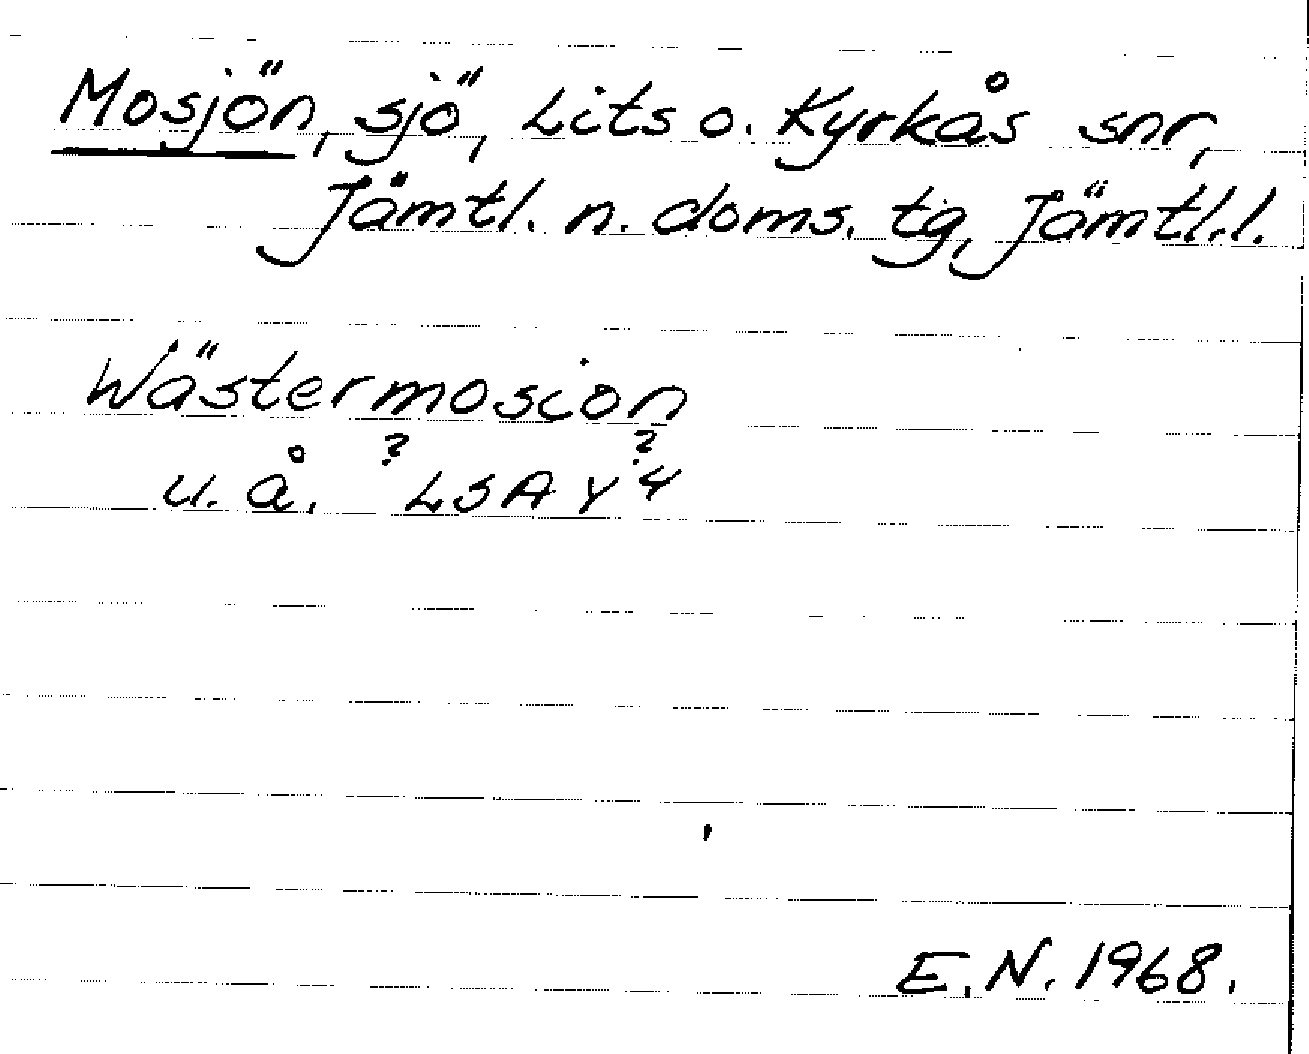 Mosjön, sjö, Lits o. Kyrkås snr,
Jämtl. n. doms. tg, Jämtl.l.
Wästermosion
u. å. ? LSA Y ? 4
E.N. 1968.